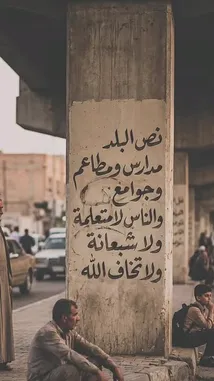 نص البلد
مدارس ومطاعم
وجوامع
والناس لامتعلمة
ولا شبعانة
ولاتخاف الله